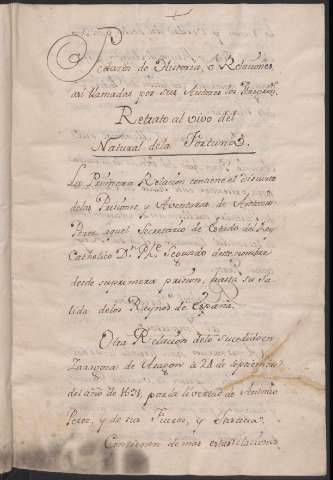 Pedazos de Historia, ó Relaciones,
assi llamadas por sus Autores los Peregrin.s
Retrato al vivo del
Natural dela Fortuna.
La Primera Relacion contiene el discurso
delas Prisiones, y Aventuras de Antonio
Perez, aquel Secretario de Estado del Rey
Catholico D.n Ph.e Segundo deste nombre
desde su primera prision, hasta su sa-
lida delos Reynos de España.
Otra Relacion delo Sucedido en
Zaragoza de Aragon à 24 de septiembre
del año de 1591, por la libertad de Antonio
Perez, y de sus Fueros, y Justicia.
Contienen de mas estas Relaciones